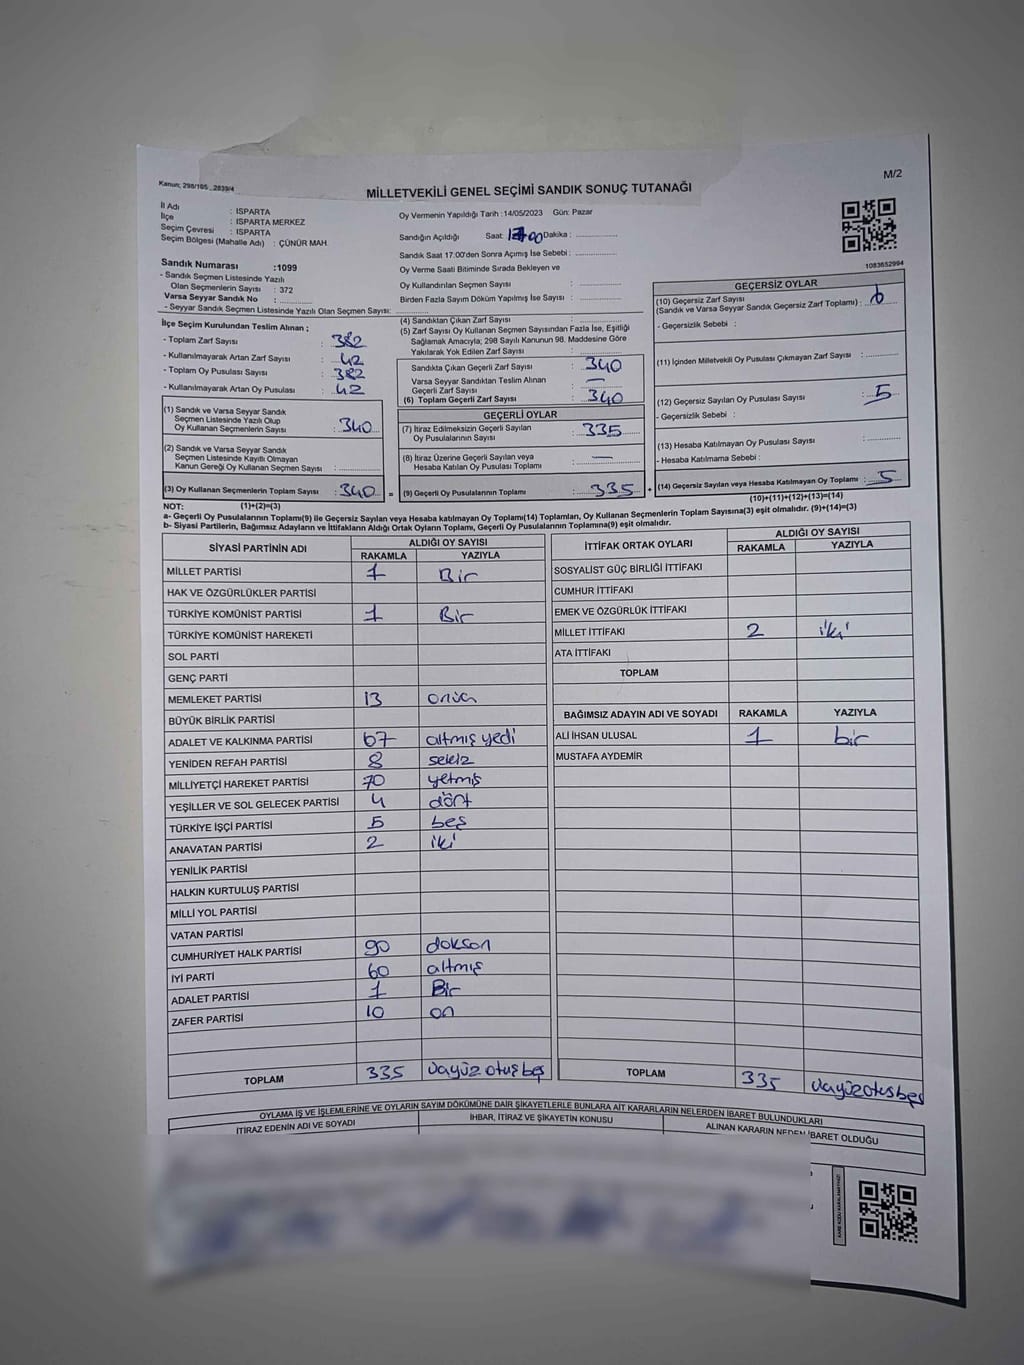 Kanun; 298/105 _2839/4
M/2
MİLLETVEKİLİ GENEL SEÇİMİ SANDIK SONUÇ TUTANAĞI
İl Adı : ISPARTA
İlçe : ISPARTA MERKEZ
Seçim Çevresi : ISPARTA
Seçim Bölgesi (Mahalle Adı) : ÇÜNÜR MAH.
Sandık Numarası :1099
- Sandık Seçmen Listesinde Yazılı
Olan Seçmenlerin Sayısı : 372
Varsa Seyyar Sandık No :
- Seyyar Sandık Seçmen Listesinde Yazılı Olan Seçmen Sayısı:
Oy Vermenin Yapıldığı Tarih :14/05/2023 Gün: Pazar
Sandığın Açıldığı Saat: 17:00 Dakika :
Sandık Saat 17.00'den Sonra Açımış İse Sebebi :
Oy Verme Saati Bitiminde Sırada Bekleyen ve
Oy Kullandırılan Seçmen Sayısı :
Birden Fazla Sayım Döküm Yapılmış İse Sayısı :
1083652994
İlçe Seçim Kurulundan Teslim Alınan ;
- Toplam Zarf Sayısı : 382
- Kullanılmayarak Artan Zarf Sayısı : 42
- Toplam Oy Pusulası Sayısı : 382
- Kullanılmayarak Artan Oy Pusulası : 42
(1) Sandık ve Varsa Seyyar Sandık
Seçmen Listesinde Yazılı Olup
Oy Kullanan Seçmenlerin Sayısı : 340
(2) Sandık ve Varsa Seyyar Sandık
Seçmen Listesinde Kayıtlı Olmayan
Kanun Gereği Oy Kullanan Seçmen Sayısı :
(3) Oy Kullanan Seçmenlerin Toplam Sayısı : 340 =
(4) Sandıktan Çıkan Zarf Sayısı :
(5) Zarf Sayısı Oy Kullanan Seçmen Sayısından Fazla İse, Eşitliği
Sağlamak Amacıyla; 298 Sayılı Kanunun 98. Maddesine Göre
Yakılarak Yok Edilen Zarf Sayısı :
Sandıkta Çıkan Geçerli Zarf Sayısı : 340
Varsa Seyyar Sandıktan Teslim Alınan
Geçerli Zarf Sayısı : —
(6) Toplam Geçerli Zarf Sayısı : 340
GEÇERLİ OYLAR
(7) İtiraz Edilmeksizin Geçerli Sayılan
Oy Pusulalarının Sayısı : 335
(8) İtiraz Üzerine Geçerli Sayılan veya
Hesaba Katılan Oy Pusulası Toplamı : —
(9) Geçerli Oy Pusulalarının Toplamı : 335 +
GEÇERSİZ OYLAR
(10) Geçersiz Zarf Sayısı
(Sandık ve Varsa Seyyar Sandık Geçersiz Zarf Toplamı) :
- Geçersizlik Sebebi :
(11) İçinden Milletvekili Oy Pusulası Çıkmayan Zarf Sayısı :
(12) Geçersiz Sayılan Oy Pusulası Sayısı : 5
- Geçersizlik Sebebi :
(13) Hesaba Katılmayan Oy Pusulası Sayısı :
- Hesaba Katılmama Sebebi :
(14) Geçersiz Sayılan veya Hesaba Katılmayan Oy Toplamı : 5
NOT: (1)+(2)=(3) (10)+(11)+(12)+(13)=(14)
a- Geçerli Oy Pusulalarının Toplamı(9) ile Geçersiz Sayılan veya Hesaba katılmayan Oy Toplamı(14) Toplamları, Oy Kullanan Seçmenlerin Toplam Sayısına(3) eşit olmalıdır. (9)+(14)=(3)
b- Siyasi Partilerin, Bağımsız Adayların ve İttifakların Aldığı Ortak Oyların Toplamı, Geçerli Oy Pusulalarının Toplamına(9) eşit olmalıdır.
SİYASİ PARTİNİN ADI ALDIĞI OY SAYISI
RAKAMLA YAZIYLA
MİLLET PARTİSİ 1 Bir
HAK VE ÖZGÜRLÜKLER PARTİSİ
TÜRKİYE KOMÜNİST PARTİSİ 1 Bir
TÜRKİYE KOMÜNİST HAREKETİ
SOL PARTİ
GENÇ PARTİ
MEMLEKET PARTİSİ 13 onüç
BÜYÜK BİRLİK PARTİSİ
ADALET VE KALKINMA PARTİSİ 67 altmış yedi
YENİDEN REFAH PARTİSİ 8 sekiz
MİLLİYETÇİ HAREKET PARTİSİ 70 yetmiş
YEŞİLLER VE SOL GELECEK PARTİSİ 4 dört
TÜRKİYE İŞÇİ PARTİSİ 5 beş
ANAVATAN PARTİSİ 2 iki
YENİLİK PARTİSİ
HALKIN KURTULUŞ PARTİSİ
MİLLİ YOL PARTİSİ
VATAN PARTİSİ
CUMHURİYET HALK PARTİSİ 90 doksan
İYİ PARTİ 60 altmış
ADALET PARTİSİ 1 Bir
ZAFER PARTİSİ 10 on
TOPLAM 335 üçyüz otuz beş
İTTİFAK ORTAK OYLARI ALDIĞI OY SAYISI
RAKAMLA YAZIYLA
SOSYALİST GÜÇ BİRLİĞİ İTTİFAKI
CUMHUR İTTİFAKI
EMEK VE ÖZGÜRLÜK İTTİFAKI
MİLLET İTTİFAKI 2 iki
ATA İTTİFAKI
TOPLAM
BAĞIMSIZ ADAYIN ADI VE SOYADI RAKAMLA YAZIYLA
ALİ İHSAN ULUSAL 1 bir
MUSTAFA AYDEMİR
TOPLAM 335 üçyüzotuzbeş
OYLAMA İŞ VE İŞLEMLERİNE VE OYLARIN SAYIM DÖKÜMÜNE DAİR ŞİKAYETLERLE BUNLARA AİT KARARLARIN NELERDEN İBARET BULUNDUKLARI
İTİRAZ EDENİN ADI VE SOYADI İHBAR, İTİRAZ VE ŞİKAYETİN KONUSU ALINAN KARARIN NEDEN İBARET OLDUĞU